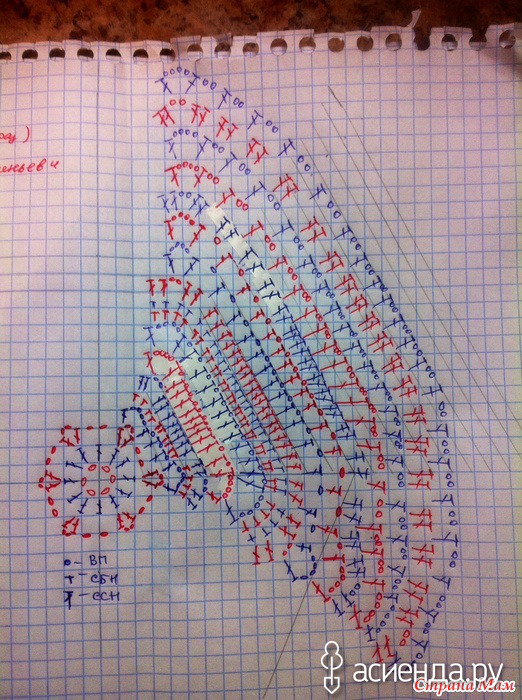 о - ВП
т - СБН
ŧ - ССН
асиенда.ру
Страна Мам